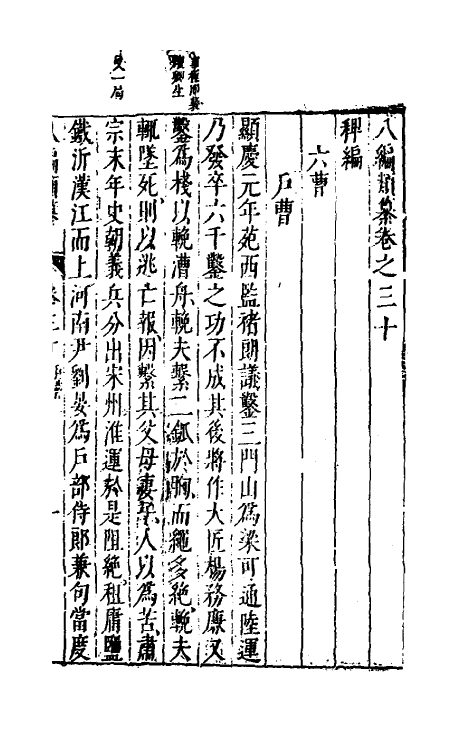 八編類纂卷之三十
稗編
六曹
戶曹
顯慶元年苑西監褚朗議鑿三門山為梁可通陸運
乃發卒六千鑿之功不成其後將作大匠楊務廉又
鑿為棧以輓漕舟輓夫繫二鈲於胸而繩多絕輓夫
輒墜死則以逃亡報因繫其父母妻子人以為苦肅
宗末年史朝義兵分出宋州淮運於是阻絕租庸鹽
鐵泝漢江而上河南尹劉晏為戶部侍郎兼句當度
又一局